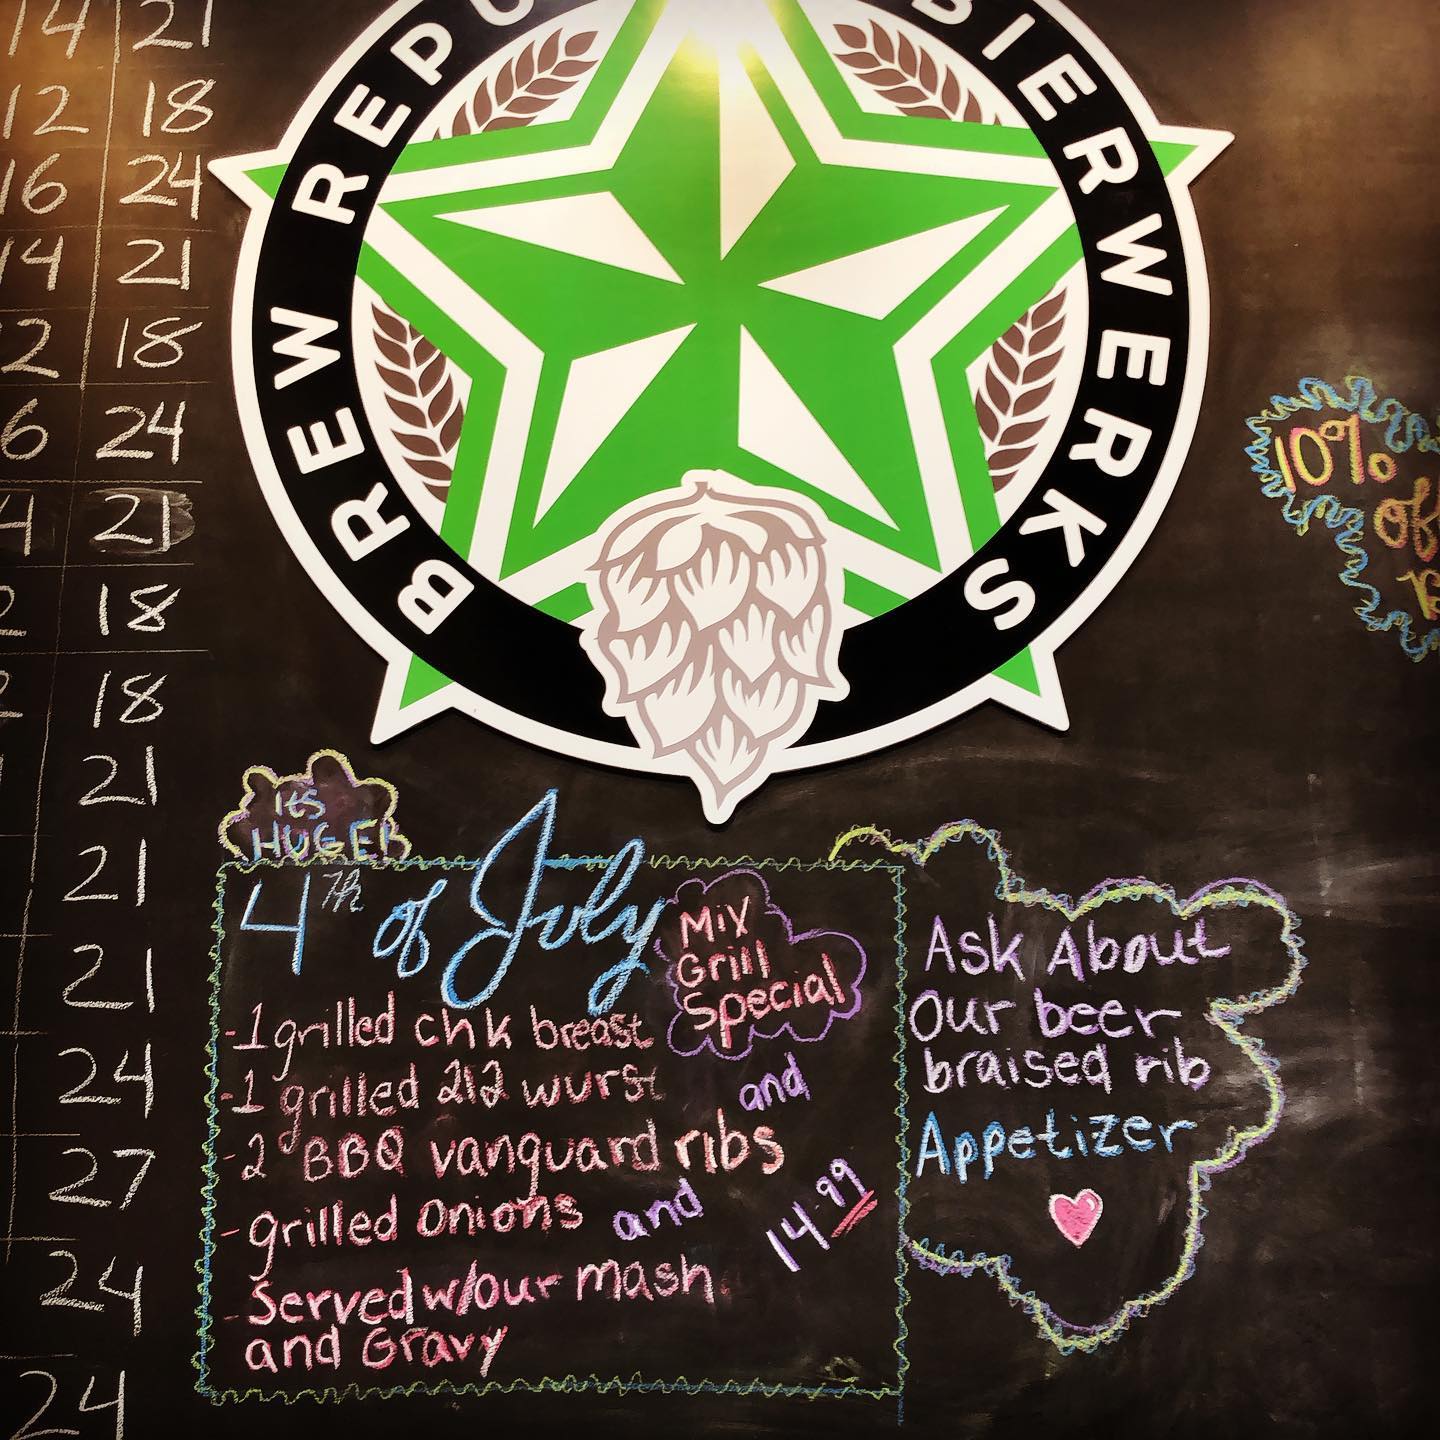 14 21
12 18
16 24
14 21
2 18
6 24
4 21
2 18
2 18
21
21
21
24
27
24
24
BREW REPU BIERWERKS
10%
off
its
HUGER
4th of July
Mix
Grill
Special
-1 grilled chk breast
-1 grilled 212 wurst and
-2 BBQ vanguard ribs
-grilled Onions and
14.99
-Served w/our mash
and Gravy
Ask About
Our beer
braised rib
Appetizer